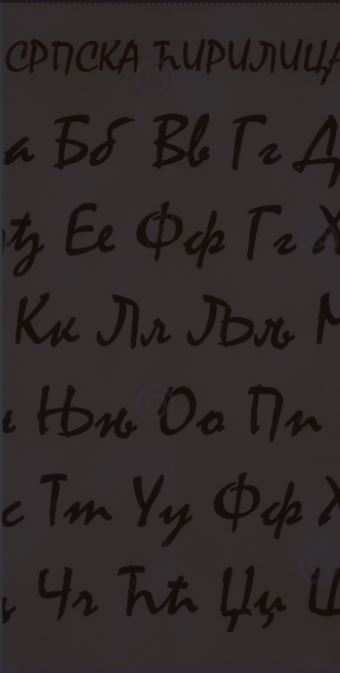 СРПСКА ЋИРИЛИЦА
а Бб Вв Гг Д
ђ Ее Фф Гг Х
Кк Лл Љљ М
Њњ Оо Пп
с Тт Уу Фф Х
Чч Ћћ Цц